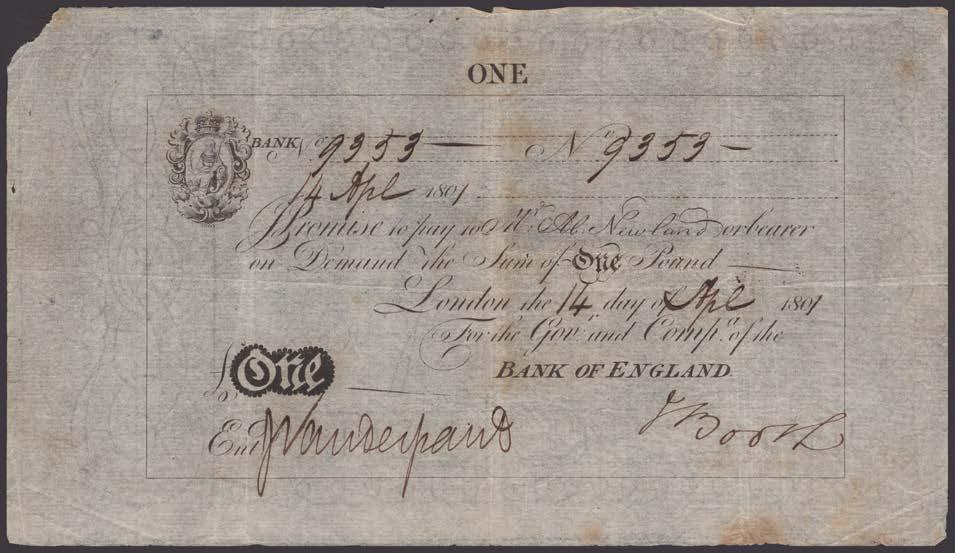 ONE
BANK No 9353 — No 9353 —
14 Apl 1801
I Promise to pay to Mr. Ab. Newland or bearer
on Demand the Sum of One Pound
London, the 14 day of Apl 1801
For the Govr. and Compa. of the
BANK OF ENGLAND
£ One
Entd
J Booth